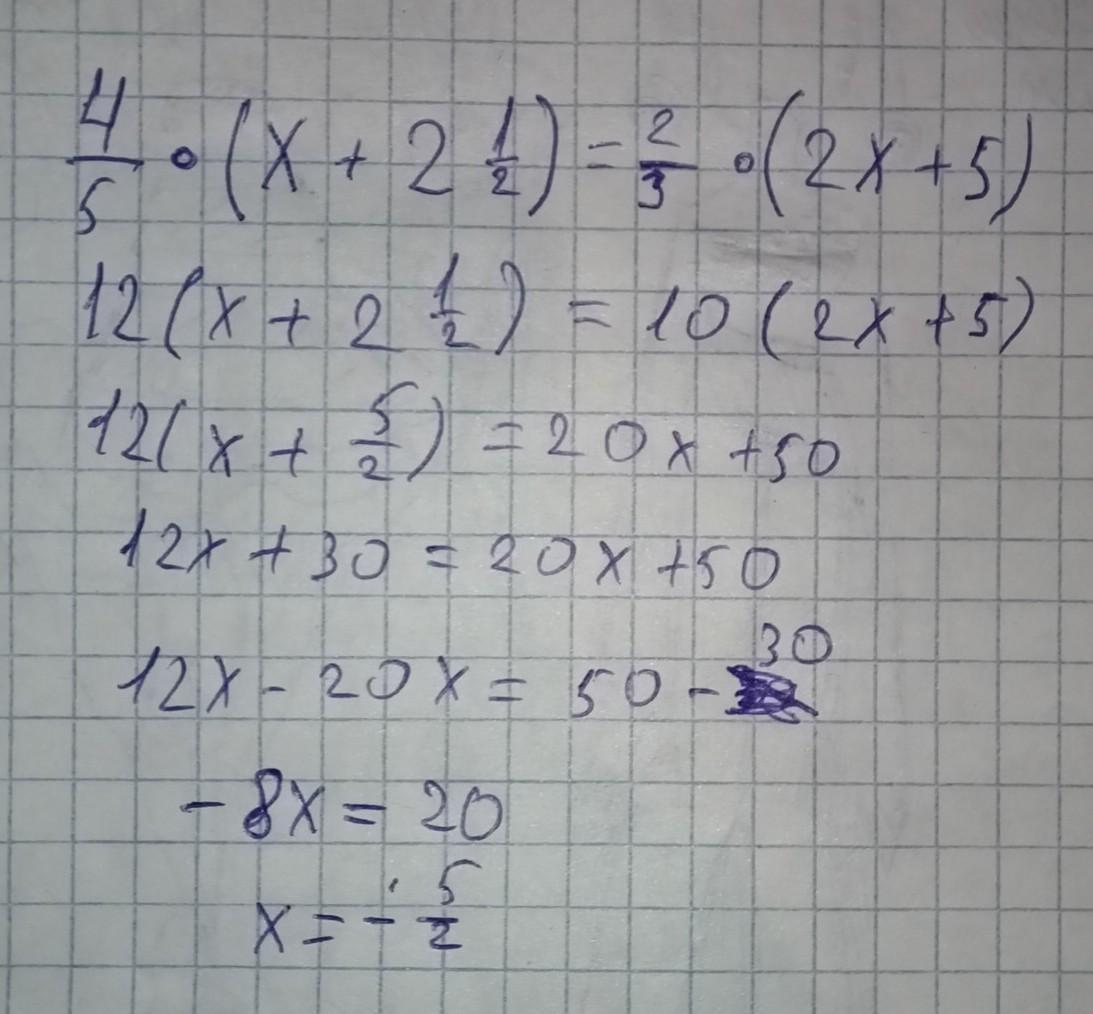 4/5 • (x + 2 1/2) = 2/3 • (2x + 5)
12(x + 2 1/2) = 10(2x + 5)
12(x + 5/2) = 20x + 50
12x + 30 = 20x + 50
12x - 20x = 50 - 30
-8x = 20
x = - 5/2